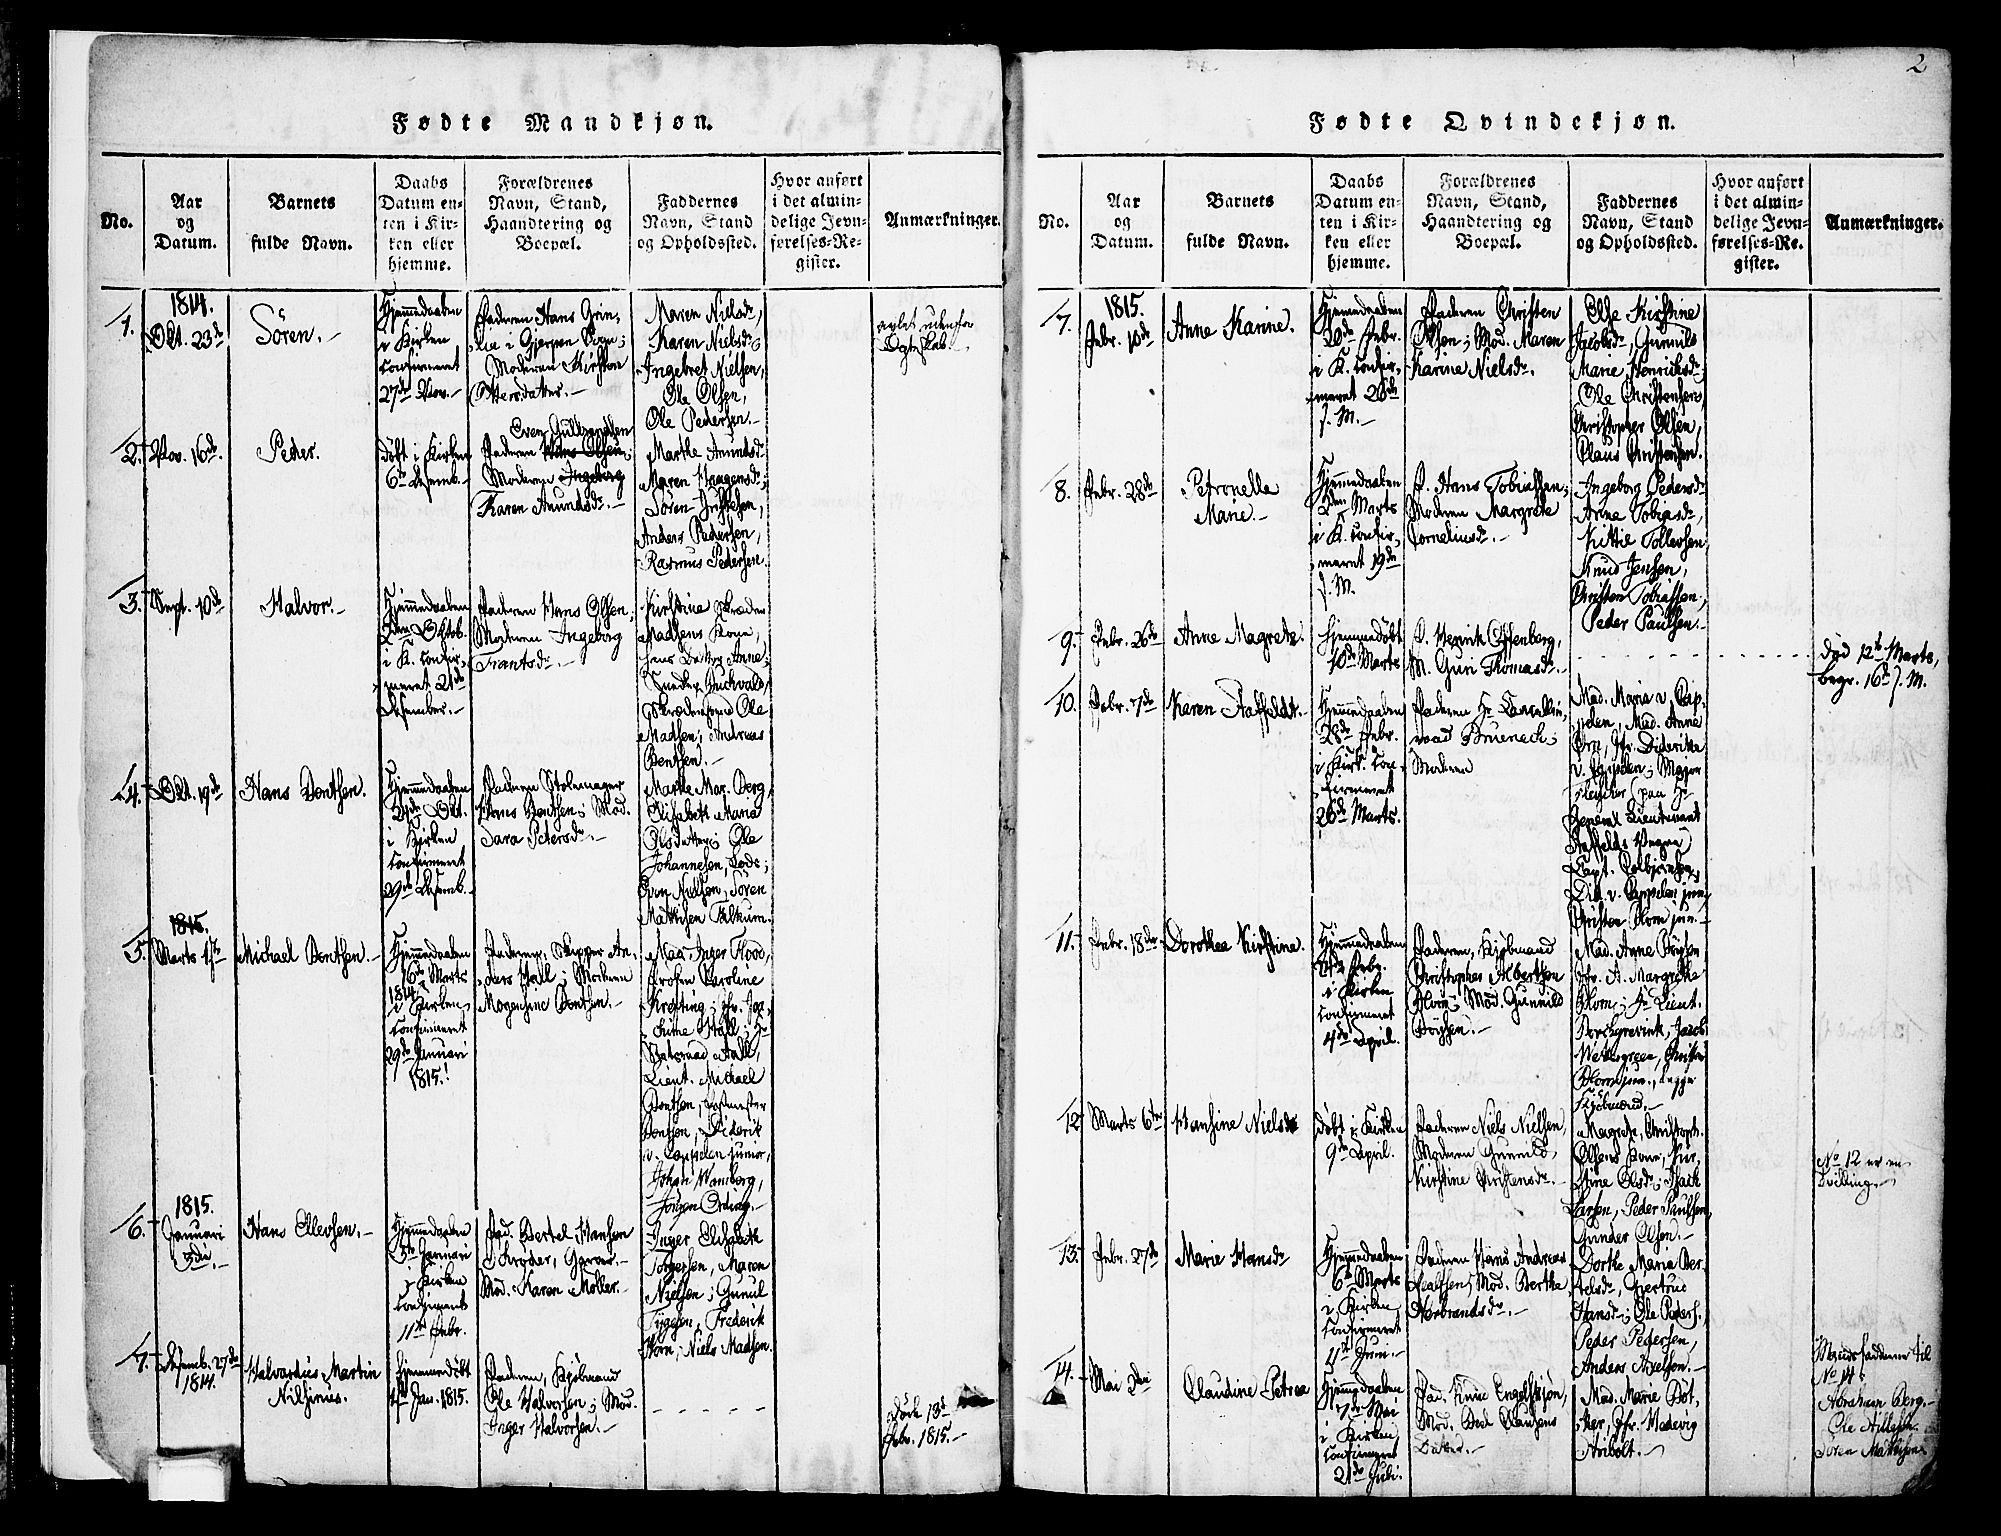 Fødte Mandkjøn.
No.
Aar
og
Datum.
Barnets
fulde Navn.
Daabs
Datum en-
ten i Kir-
ken eller
hjemme.
Forældrenes
Navn, Stand,
Haandtering og
Boepæl.
Faddernes
Navn, Stand
og Opholdssted.
Hvor anført
i det almin-
delige Jevn-
førelses-Re-
gister.
Anmærkninger.
1.
1814.
Okt. 23d
Sören.
Hjemmedaaben
i Kirken
confirmeret
27de Nov.
Faderen Hans
i Gjerpen
Moderen Kirsten
Maren Nielsdr,
Karen Nielsdr,
Ingebret Nielsen,
Ole Olsen,
Ole Pedersen.
avlet udenfor
Egteskab.
2.
Nov. 16de
Peder.
Döbt i Kirken
6te Desemb.
Even Gulbrandsen
Faderen Hans Olsen
Moderen Ingeborg
Karen Anundsdr.
Marthe Anundsdr
Maren Haagensdr,
Sören
Anders Pedersen,
Rasmus Pedersen.
3.
Sept. 10de
Halvor.
Hjemmedaaben
2den Oktob.
i K. confir-
meret 21de
Desember.
Faderen Hans Olsen,
Moderen Ingeborg
Frantsdr.
Kirstine Skræder
Madsens Kone,
hens Datter Anne,
Ole
Madsen, Andreas
Bentsen.
4.
Okt. 19de
Hans Bentsen.
Hjemmedaaben
Okt.
i Kirken
confirmeret
29de Desemb.
Faderen Stolemager
Hans Bentsen; Mod.
Sara Petersdr.
Marthe Mar. Berg,
Elisabeth Maria
Olsdatter; Ole
Johannesen, Lods;
Even Nielsen, Sören
Mathisen Falkum.
5.
1815.
Marts 1ste
Michael Bentsen.
Hjemmedaaben
16de Marts
1814
i Kirken
confirmeret
29de Januari
1815.
Faderen, Skipper An-
ders Hall; Moderen
Mogensine Bentsen.
Mad. Inger Flood,
Frøken Caroline
Aall,
Lieut. Michael
Bentsen, Postmester
Bentsen, Diderik
v. Cappelen junior,
Johan Wamberg,
Jörgen Ording.
6.
1815.
Januari
3die.
Hans Ellevsen.
Hjemmedaaben
5te Januari
i Kirken
confirmeret
11te Febr.
Fad. Bertel Hansen
Schröder, Garver.
Mod. Karen Moller.
Inger Elisabeth
Torgersen, Maren
Nielsen; Gunul
Tyggesen, Frederik
Horn, Niels Madsen.
7.
Desemb. 27de
1814.
Halvardus Martin
Nilsinus.
Hjemmedöbt
1ste Jan. 1815.
Faderen, Kjöbmand
Ole Halvorsen; Mod.
Inger Halvorsen.
Död 13de
Febr. 1815.
2
Fødte Qvindekjøn.
No.
Aar
og
Datum.
Barnets
fulde Navn.
Daabs
Datum en-
ten i Kir-
ken eller
hjemme.
Forældrenes
Navn, Stand,
Haandtering og
Boepæl.
Faddernes
Navn, Stand
og Opholdssted.
Hvor anført
i det almin-
delige Jevn-
førelses-Re-
gister.
Anmærkninger.
7.
1815.
Febr. 10de
Anne Karine.
Hjemmedaaben
20de Febr.
i K. confir-
meret 26de
s. M.
Faderen Christen
Olsen; Mod. Maren
Karine Nielsdr.
Else Kirstine
Jacobsdr, Gunnild
Marie Henriksdr,
Ole Christensen,
Christopher Olsen,
Claus Christensen.
8.
Febr. 28de
Petronelle
Marie.
Hjemmedaaben
2den Marts
i K. confir-
meret 19de
s. M.
F. Hans Tobiassen;
Moderen Margrete
Corneliusdr.
Ingeborg Pedersdr
Anne Tobiasdr,
Kittie Tollevsen,
Knud Jensen,
Christen Tobiassen,
Peder Paulsen.
9.
Febr. 26de
Anne Magrete.
Hjemmedöbt
10de Marts
F. Henrik Offenberg,
M. Guri Thomasdr.
död 12te Marts,
begr. 16de s. M.
10.
Febr. 7de
Karen Staffeldt.
Hjemmedaaben
28de Febr.
i Kirk. con-
firmeret
26de Marts.
Faderen Hr Cancelli-
raad Bruenech;
Moderen
Mad. Maria v. Cap-
pelen, Mad. Anne
Örn, Jfr. Diderikke
v. Cappelen; Major
Fleischer (paa Hr
General Lieutenant
Staffeldts Vegne)
Capt. Colbjørnsen,
Did. v. Cappelen jun.
Christen Blom jun.
11.
Febr. 18de
Dorothea Kirstine.
Hjemmedaaben
Febr.
i Kirken
confirmeret
4de April.
Faderen, Kjöbmand
Christopher Albertsen
Blom; Mod. Gunnild
Börsen.
Mad. Anne Börsen,
Jfr. A. Margrethe
Blom; Hr Lieut.
Borchgrevink, Jacob
Wettergreen, Christen
Blom jun., begge
Kjöbmænd.
12
Marts 6te
Hansine Nielsdr
Döbt i Kirken
9de April.
Faderen Niels Nielsen,
Moderen Gunnild
Kirstine Christensdr.
Magrete, Christoph.
Olsens Kone, Kir-
stine Olsdr; Isack
Larsen, Peder Paulsen,
Gunder Olsen.
No 12 er en
Tvilling.
13.
Febr. 27de
Marie Hansdr
Hjemmedaaben
6te Marts
i Kirken
confirmeret
11te Juni.
Faderen Hans Andreas
Mod. Berthe
Herbrandsdr.
Dorthe Maria Ber-
telsdr, Gjertrud
Hansdr; Ole Peders.
Peder Pedersen,
Anders Axelsen.
14.
Mai 2den
Claudine Petrea
Hjemmedaaben
7de Mai
i Kirken
confirmeret
21de Juli.
Fad. Knud Engelskjøn,
Mod. Clausens
Datter.
Mad. Marie Böt-
ker, Jfr. Hedevig
Ariboldt.
Mandsfaddere til
No 14:
Abraham Berg.
Ole
Sören Mathisen